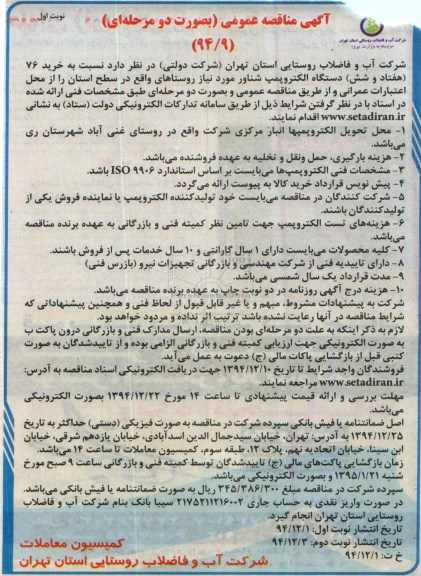 نوبت اول
آگهی مناقصه عمومی (بصورت دو مرحله‌ای)
(۹۴/۹)
شرکت آب و فاضلاب روستایی استان تهران
وابسته به وزارت نیرو
شرکت آب و فاضلاب روستایی استان تهران (شرکت دولتی) در نظر دارد نسبت به خرید ۷۶
(هفتاد و شش) دستگاه الکتروپمپ شناور مورد نیاز روستاهای واقع در سطح استان را از محل
اعتبارات عمرانی و از طریق مناقصه عمومی و بصورت دو مرحله‌ای طبق مشخصات فنی ارائه شده
در اسناد با در نظر گرفتن شرایط ذیل از طریق سامانه تدارکات الکترونیکی دولت (ستاد) به نشانی
www.setadiran.ir اقدام نمایند.
۱- محل تحویل الکتروپمپها انبار مرکزی شرکت واقع در روستای غنی آباد شهرستان ری
می‌باشد.
۲- هزینه بارگیری، حمل ونقل و تخلیه به عهده فروشنده می‌باشد.
۳- مشخصات فنی الکتروپمپ‌ها می‌بایست بر اساس استاندارد ISO ۹۹۰۶ باشد.
۴- پیش نویس قرارداد خرید کالا به پیوست ارائه می‌گردد.
۵- شرکت کنندگان در مناقصه می‌بایست خود تولیدکننده الکتروپمپ یا نماینده فروش یکی از
تولیدکنندگان باشند.
۶- هزینه‌های تست الکتروپمپ جهت تامین نظر کمیته فنی و بازرگانی به عهده برنده مناقصه
می‌باشد.
۷- کلیه محصولات می‌بایست دارای ۱ سال گارانتی و ۱۰ سال خدمات پس از فروش باشند.
۸- دارای تاییدیه فنی از شرکت مهندسی و بازرگانی تجهیزات نیرو (بازرس فنی)
۹- مدت قرارداد یک سال شمسی می‌باشد.
۱۰- هزینه درج آگهی روزنامه در دو نوبت چاپ به عهده برنده مناقصه می‌باشد.
شرکت به پیشنهادات مشروط، مبهم و یا غیر قابل قبول از لحاظ فنی و همچنین پیشنهاداتی که
شرایط مناقصه در آنها رعایت نشده باشد ترتیب اثر نداده و مردود خواهد بود.
لازم به ذکر اینکه به علت دو مرحله‌ای بودن مناقصه، ارسال مدارک فنی و بازرگانی درون پاکت ب
به صورت الکترونیکی جهت ارزیابی کمیته فنی و بازرگانی الزامی بوده و از تاییدشدگان به صورت
کتبی قبل از بازگشایی پاکات مالی (ج) دعوت به عمل می‌آید.
فروشندگان واجد شرایط تا تاریخ ۱۳۹۴/۱۲/۱۰ جهت دریافت الکترونیکی اسناد مناقصه به آدرس:
www.setadiran.ir مراجعه نمایند.
مهلت بررسی و ارائه قیمت پیشنهادی تا ساعت ۱۴ مورخ ۱۳۹۴/۱۲/۲۲ بصورت الکترونیکی
می‌باشد.
اصل ضمانتنامه یا فیش بانکی سپرده شرکت در مناقصه به صورت فیزیکی (دستی) حداکثر به تاریخ
۱۳۹۴/۱۲/۲۵ به آدرس: تهران، خیابان سیدجمال الدین اسدآبادی، خیابان یازدهم شرقی، خیابان
ابن سینا، خیابان اتحادیه نهم، پلاک ۱۲، طبقه سوم، کمیسیون معاملات تا ساعت ۱۴ می‌باشد.
زمان بازگشایی پاکت‌های مالی (ج) تاییدشدگان توسط کمیته فنی و بازرگانی ساعت ۹ صبح مورخ
شنبه ۱۳۹۵/۱/۲۱ می‌باشد و بصورت الکترونیکی می‌باشد.
سپرده شرکت در مناقصه مبلغ ۳۴۵/۳۸۶/۳۰۰ ریال به صورت ضمانتنامه یا فیش بانکی می‌باشد.
در صورت واریز نقدی به حساب جاری ۲۱۷۵۲۱۱۲۱۶۰۰۲ سیبا بانک بنام شرکت آب و فاضلاب
روستایی استان تهران انجام گیرد.
تاریخ انتشار نوبت اول: ۹۴/۱۲/۱
تاریخ انتشار نوبت دوم: ۹۴/۱۲/۳
خ ت: ۹۴/۱۲/۱
کمیسیون معاملات
شرکت آب و فاضلاب روستایی استان تهران